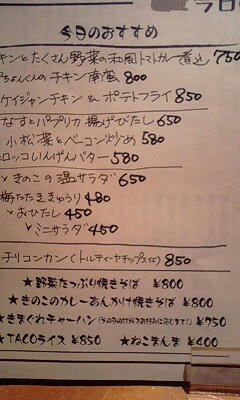 今日の
今日のおすすめ
キンとたくさん野菜の和風トマトカレー煮込 750
ちょんくんのチキン南蛮 800
ケイジャンチキン & ポテトフライ 850
なすとパプリカ 揚げびたし 650
小松菜とベーコン炒め 580
ロッコいんげんバター 580
きのこの温サラダ 650
梅たたききゅうり 480
おひたし 450
ミニサラダ 450
チリコンカン (トルティーヤチップス付) 850
★野菜たっぷり焼きそば ¥800
★きのこのカレーあんかけ焼きそば ¥800
★きまぐれチャーハン ¥750
★TACOライス ¥850 ★ねこまんま ¥400